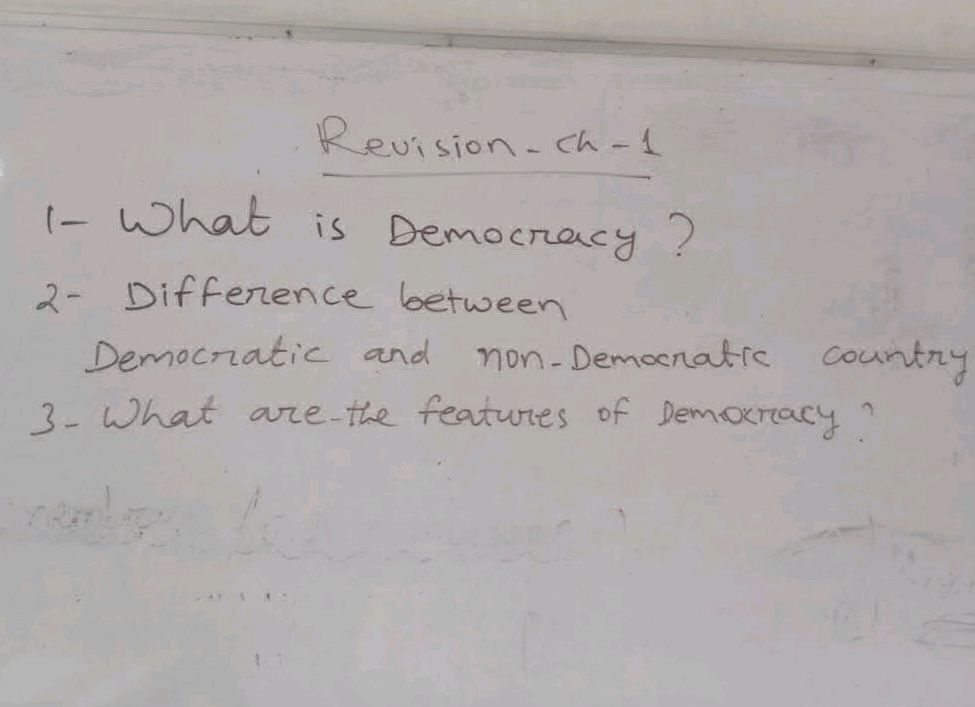 Revision - ch - 1
1- What is Democracy ?
2- Difference between
Democratic and non-Democratic country
3- What are the features of Democracy ?